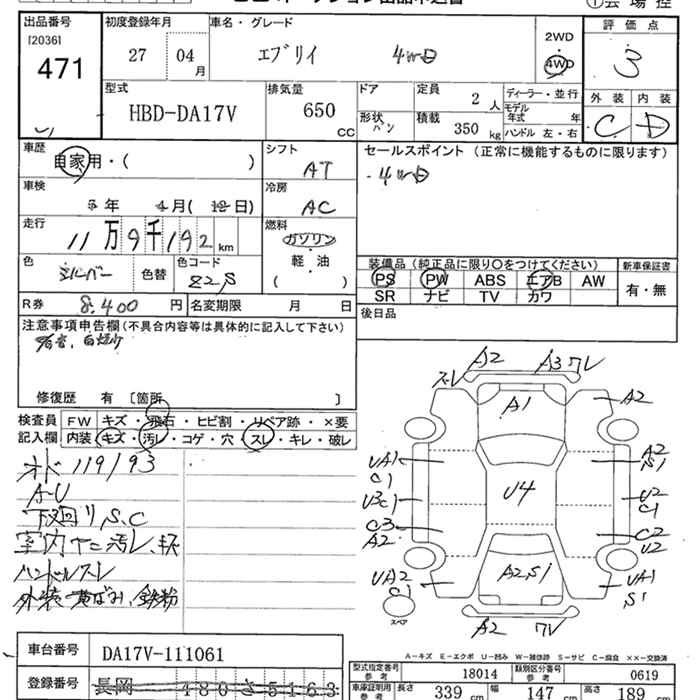 出品番号 初度登録年月 車名・グレード 評価点
[2036]
471 27 04 月 エブリイ 4WD 2WD 4WD 3
型式 排気量 ドア 定員 2 人 ディーラー・並行 外装 内装
HBD-DA17V 650 CC 形状 バン 積載 350 kg モデル年式 年 C D
ハンドル 左・右
車歴 自家用・( ) シフト AT セールスポイント (正常に機能するものに限ります)
車検 年 4月(12日) 冷房 AC ・4WD
走行 11万9千192 km 燃料 ガソリン 軽・油 ( )
色 シルバー 色替 色コード Z2S
装備品 (純正品に限り〇をつけてください) 新車保証書
PS PW ABS エアB AW 有・無
SR ナビ TV カワ
R券 8,400 円 名変期限 月 日 後日品
注意事項申告欄(不具合内容等は具体的に記入して下さい)
修復歴 有 [箇所 ]
検査員 FW キズ・飛石・ヒビ割・リペア跡・×要
記入欄 内装 キズ・汚レ・コゲ・穴・スレ・キレ・破レ
119193
A-U
下回りS.C
室内 汚レ、
ハンドルスレ
外装 黄ばみ、鉄粉
A2 A3 ワレ
ズレ A1 A2
UA1 C1 A2 S1
U3C1 U4 U2 C1
C3 A2 C2 U2
UA2 C1 A2,S1 UA1 S1
スペア A2 ワレ
A-キズ E-エクボ U-凹み W-補修跡 S-サビ C-腐食 ××-交換済
車台番号 DA17V-111061
型式指定番号 参考 18014 類別区分番号 参考 0619
登録番号 長岡 480 さ 5163
車庫証明用 参考 長さ 339 cm 幅 147 cm 高さ 89 cm